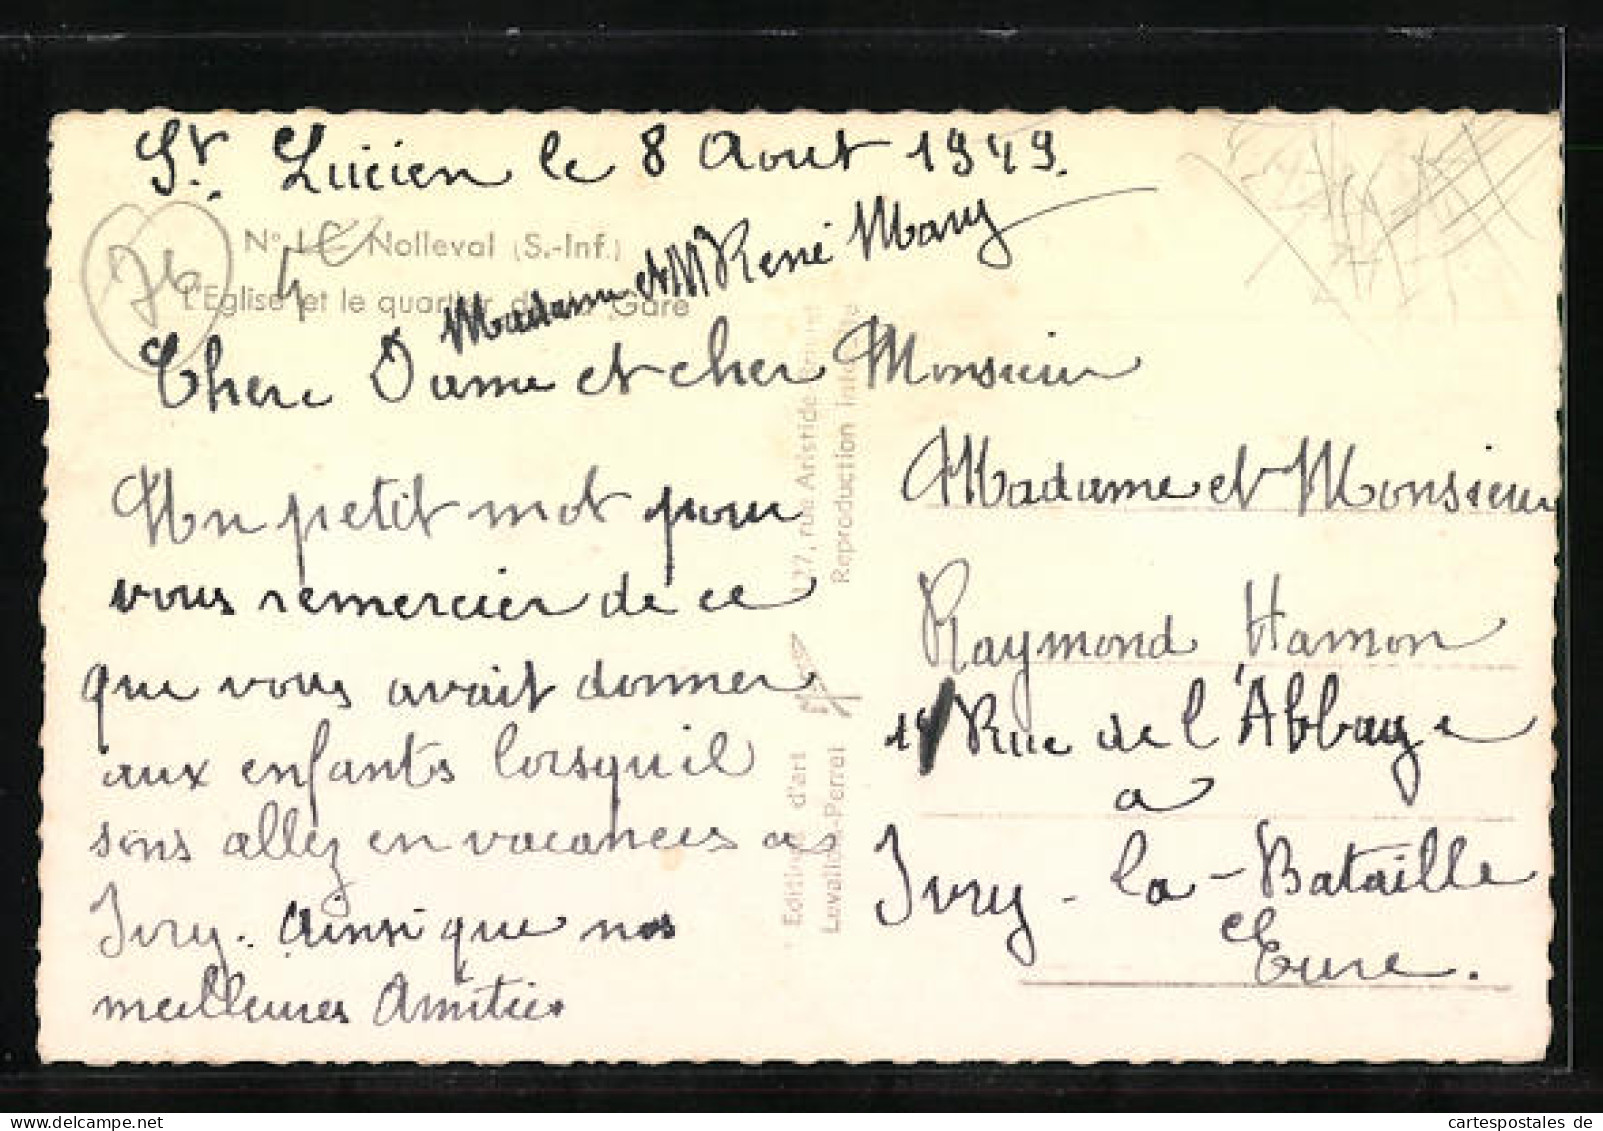 St. Lucien le 8 Aout 1949.
Nolleval (S.-Inf.)
L'Eglise et le quartier de la Gare
76
Madame et Mr René Mary
Chere Dame et cher Monsieur
Un petit mot pour
vous remercier de ce
que vous avait donner
aux enfants lorsqu'il
sons allez en vacances a
Ivry. Ainsi que nos
meilleures Amitiés
Editions d'art
Levallois-Perret
27, rue Aristide
Reproduction
Madame et Monsieur
Raymond Hamon
Rue de l'Abbaye
a
Ivry-la-Bataille
Eure.
cartespostales de